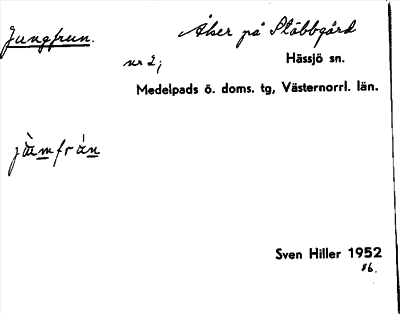 Jungfrun.
Åker på Stöbbgård
nr 2;
Hässjö sn.
Medelpads ö. doms. tg, Västernorrl. län.
Sven Hiller 1952
86.